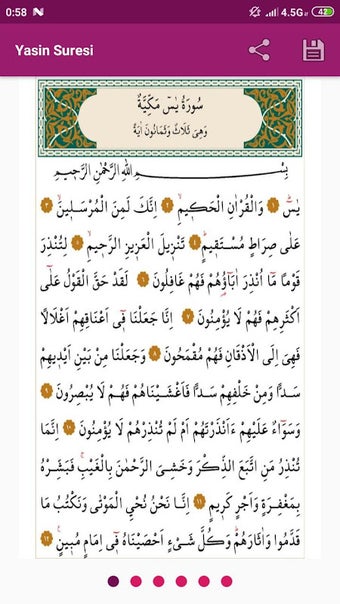 0:58 4.5G 42
Yasin Suresi
سُورَةُ يٰسٓ مَكِّيَّةٌ
وَهِيَ ثَلَاثٌ وَثَمَانُونَ اٰيَةً
بِسْــــــمِ اللّٰهِ الرَّحْمٰنِ الرَّحِيمِ
يٰسٓ ١ وَالْقُرْاٰنِ الْحَكِيمِ ٢ اِنَّكَ لَمِنَ الْمُرْسَلِينَ ٣
عَلٰى صِرَاطٍ مُسْتَقِيمٍ ٤ تَنْزِيلَ الْعَزِيزِ الرَّحِيمِ ٥ لِتُنْذِرَ
قَوْمًا مَٓا اُنْذِرَ اٰبَٓاؤُهُمْ فَهُمْ غَافِلُونَ ٦ لَقَدْ حَقَّ الْقَوْلُ عَلٰٓى
اَكْثَرِهِمْ فَهُمْ لَا يُؤْمِنُونَ ٧ اِنَّا جَعَلْنَا فٓى اَعْنَاقِهِمْ اَغْلَالًا
فَهِىَ اِلَى الْاَذْقَانِ فَهُمْ مُقْمَحُونَ ٨ وَجَعَلْنَا مِنْ بَيْنِ اَيْدِيهِمْ
سَدًّا وَمِنْ خَلْفِهِمْ سَدًّا فَاَغْشَيْنَاهُمْ فَهُمْ لَا يُبْصِرُونَ ٩
وَسَوَٓاءٌ عَلَيْهِمْ ءَاَنْذَرْتَهُمْ اَمْ لَمْ تُنْذِرْهُمْ لَا يُؤْمِنُونَ ١٠ اِنَّمَا
تُنْذِرُ مَنِ اتَّبَعَ الذِّكْرَ وَخَشِىَ الرَّحْمٰنَ بِالْغَيْبِ فَبَشِّرْهُ
بِمَغْفِرَةٍ وَاَجْرٍ كَرِيمٍ ١١ اِنَّا نَحْنُ نُحْىِ الْمَوْتٰى وَنَكْتُبُ مَا
قَدَّمُوا وَاٰثَارَهُمْ وَكُلَّ شَىْءٍ اَحْصَيْنَاهُ فٓى اِمَامٍ مُبِينٍ ١٢